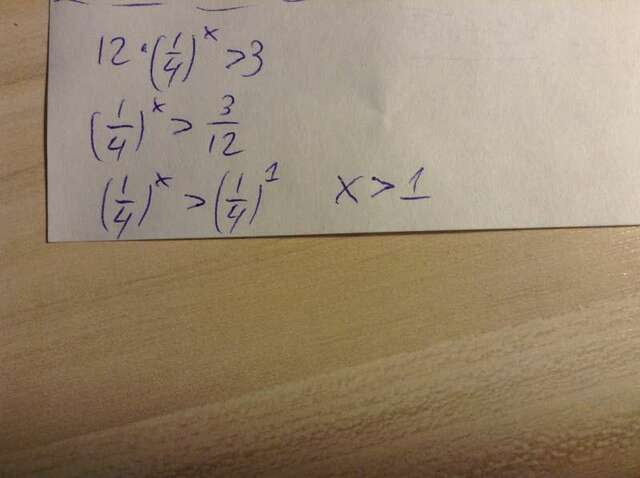 12 · (1/4)^x > 3
(1/4)^x > 3/12
(1/4)^x > (1/4)^1 x > 1